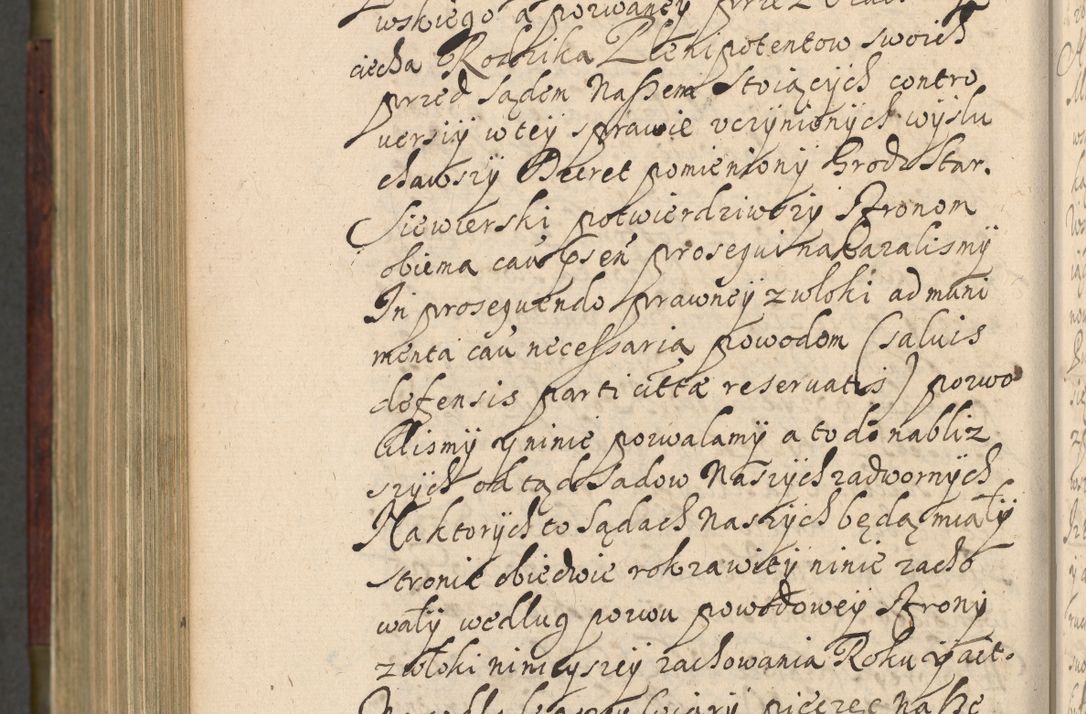 wskiego a pozwaney przez
ciecha Rozbika Plenipotentow swoich
przed Sądem Naszem stoiących contro
uersiÿ w teÿ sprawie vczÿnionÿch wÿslu
chawszÿ Decret pomienionÿ Grodz: Star.
Siewierski potwierdziwszÿ Stronom
obiema cau psen prosequi nakazalismÿ
In prosequendo prawneÿ zwłoki ad muni
menta cau necessaria powodom (saluis
defensis parti cittæ reseruatis) pozwo
lilismÿ ÿ ninie pozwalamÿ a to do nabliz
szÿch od tąd Sadow Naszÿch zadwornÿch
Na ktorÿch to Sądach naszÿch będą miałÿ
stronie obiedwie rok zawitÿ ninie zacho
wałÿ według pozwu powodoweÿ Stronÿ
zwłoki ninieÿszeÿ zachowania Roku ÿ act.
pieczęc nasze